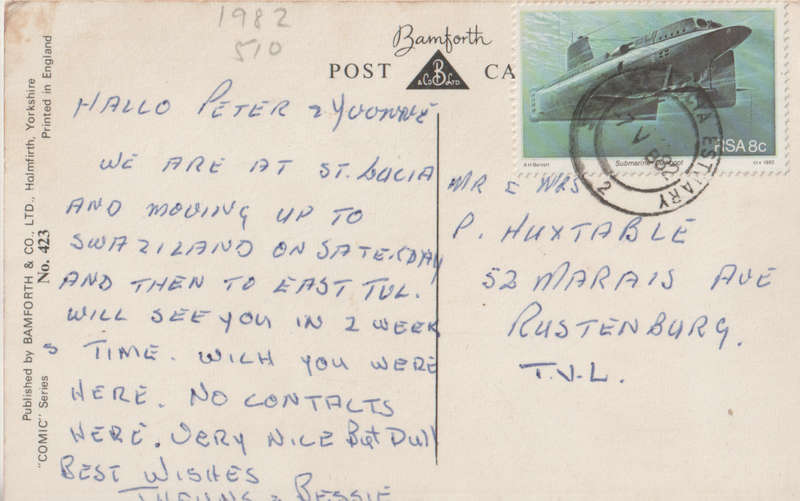 1982
510
Bamforth
POST CA
B
& Co LTD
Published by BAMFORTH & CO., LTD., Holmfirth, Yorkshire
"COMIC" Series No. 423 Printed in England
HALLO PETER & YVONNE
WE ARE AT ST. LUCIA
AND MOVING UP TO
SWAZILAND ON SATERDAY
AND THEN TO EAST TVL.
WILL SEE YOU IN 2 WEEK
S TIME. WICH YOU WERE
HERE. NO CONTACTS
HERE. VERY NICE BUT DULL
BEST WISHES
& BESSIE
MR & MRS
P. HUXTABLE
52 MARAIS AVE
RUSTENBURG.
T.V.L.
RSA 8c
Submarine
ESTUARY
2